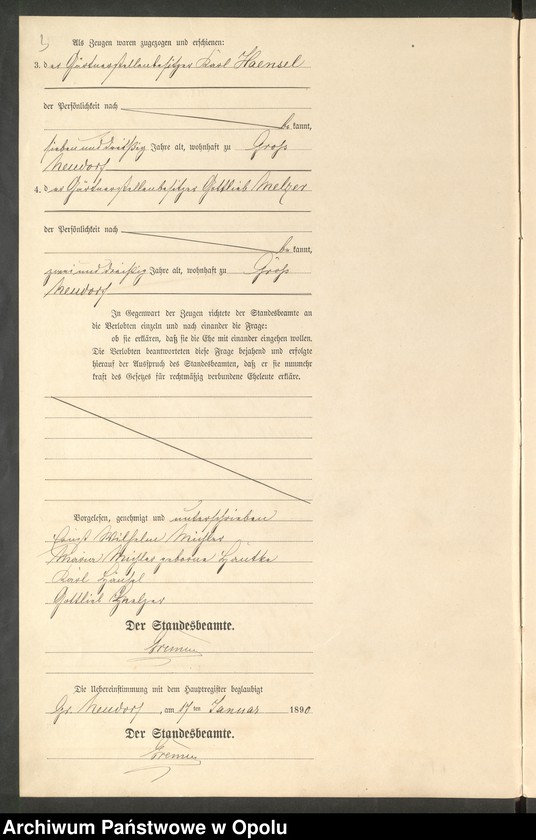 Als Zeugen waren zugezogen und erschienen:
3. der Gärtnerstellenbesitzer Karl Haensel
der Persönlichkeit nach
be kannt,
sieben und dreißig Jahre alt, wohnhaft zu Groß
Neudorf
4. der Gärtnerstellenbesitzer Gottlieb Melzer
der Persönlichkeit nach
be kannt,
zwei und dreißig Jahre alt, wohnhaft zu Groß
Neudorf
In Gegenwart der Zeugen richtete der Standesbeamte an
die Verlobten einzeln und nach einander die Frage:
ob sie erklären, daß sie die Ehe mit einander eingehen wollen.
Die Verlobten beantworteten diese Frage bejahend und erfolgte
hierauf der Ausspruch des Standesbeamten, daß er sie nunmehr
kraft des Gesetzes für rechtmäßig verbundene Eheleute erkläre.
Vorgelesen, genehmigt und unterschrieben
Wilhelm
geborne
Karl Hänsel
Gottlieb Melzer
Der Standesbeamte.
Die Uebereinstimmung mit dem Hauptregister beglaubigt
Gr. Neudorf, am 17ten Januar 1890
Der Standesbeamte.
Archiwum Państwowe w Opolu